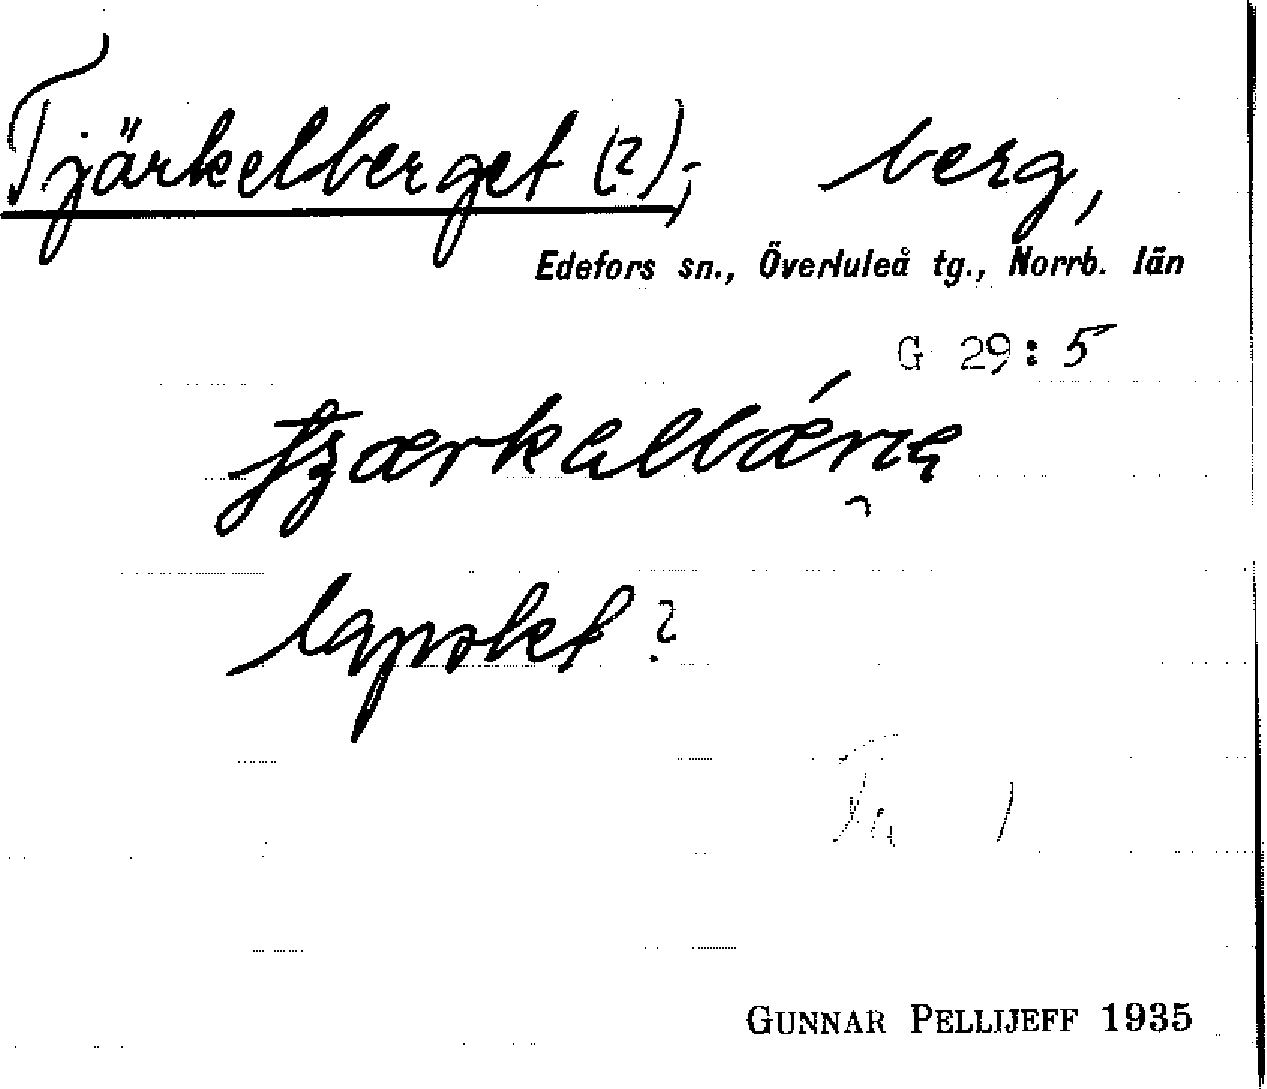 Tjärkelberget (?), berg,
Edefors sn., Överluleå tg., Norrb. län
G 29:5
lapskt?
GUNNAR PELLIJEFF 1935